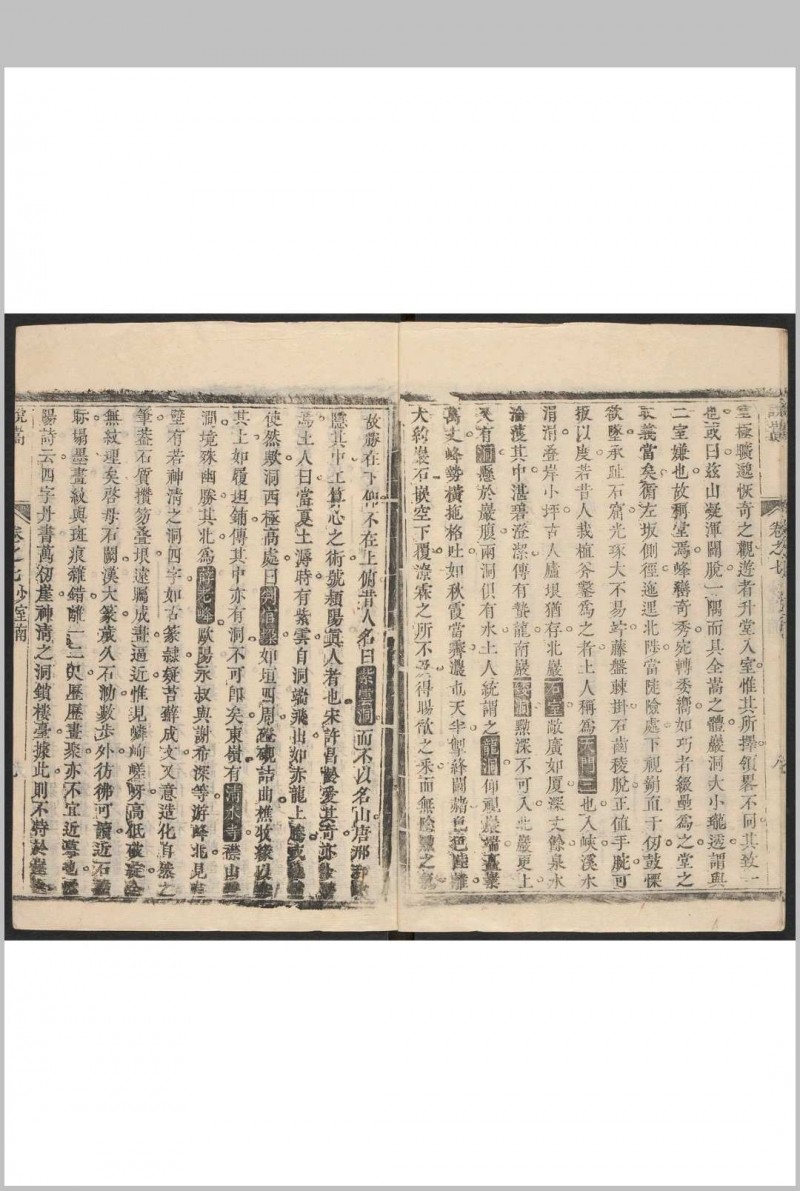 室極曠邈恢奇之觀遊者升堂入室惟其所擇領畧不同其致一
也或曰茲山凝渾闢脫一隅而具全嵩之體巖洞大小瓏透謂與
二室嫌也故稱堂焉峰巒奇秀宛轉委嚮如巧者綴壘爲之堂之
義當矣衛左坂側徑迤邐北陟當陡險處下視崭直千仞鼓慄
欲墜承趾石窩光琢大不易竚藤盤棘掛石齒稜脫正值手腕可
扳以度若昔人栽植斧鑿爲之者土人稱爲天門三也入峽溪水
涓涓疊岸小坪古人廬垠猶存北巖石室敞廣如厦深丈餘泉水
淪蕩其中湛碧澄潔傳有蟄龍南巖洞黝深不可入北巖更上
又有洞懸於巖腹兩洞俱有水土人統謂之龍洞仰視巖端
萬丈峰勢橫拖格吐如秋霞當霽濃市天半
大約裏石嵌空下覆潦霖之所不及得暘歊之釆而無陰之
故勝在下仰不在上俯昔人名曰紫雲洞而不以名山唐邢
隱其中工算心之術號頯陽眞人者也宋許昌齡愛其奇亦
焉土人曰當夏土溽時有紫雲自洞端飛出如赤龍上騰或
使然歟洞西極高處曰如垣四周磴硯詰曲樵牧緣以
其上如履坦鋪傳其中亦有洞不可卽矣東嶺有清水寺襟山
澗境殊幽勝其北爲峰歐陽永叔與謝希深等游峰北見
壁有若神清之洞四字如古篆隸疑苔蘚成文又意造化自然之
筆葢石質攢笏疊垠遠矚成畫逼近惟見嶙峋嵯岈高低
無紋理矣啓母石闕漢大篆歲久石泐數步外彷彿可讀近石
眎塌墨畫紋與斑痕雜錯離一二尺歷歷畫亦不宜近摹也
陽詩云四字丹書萬仞崖神清之洞鎖樓臺據此則不特於
說嵩 卷之七 少室南 九